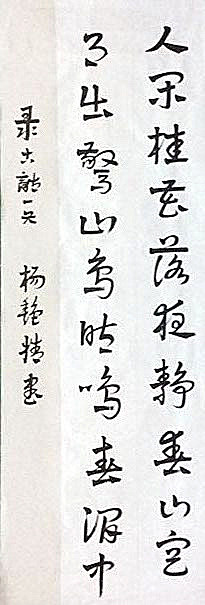 人闲桂花落夜静春山空
月出惊山鸟时鸣春涧中
录古诗一首 杨艳精书